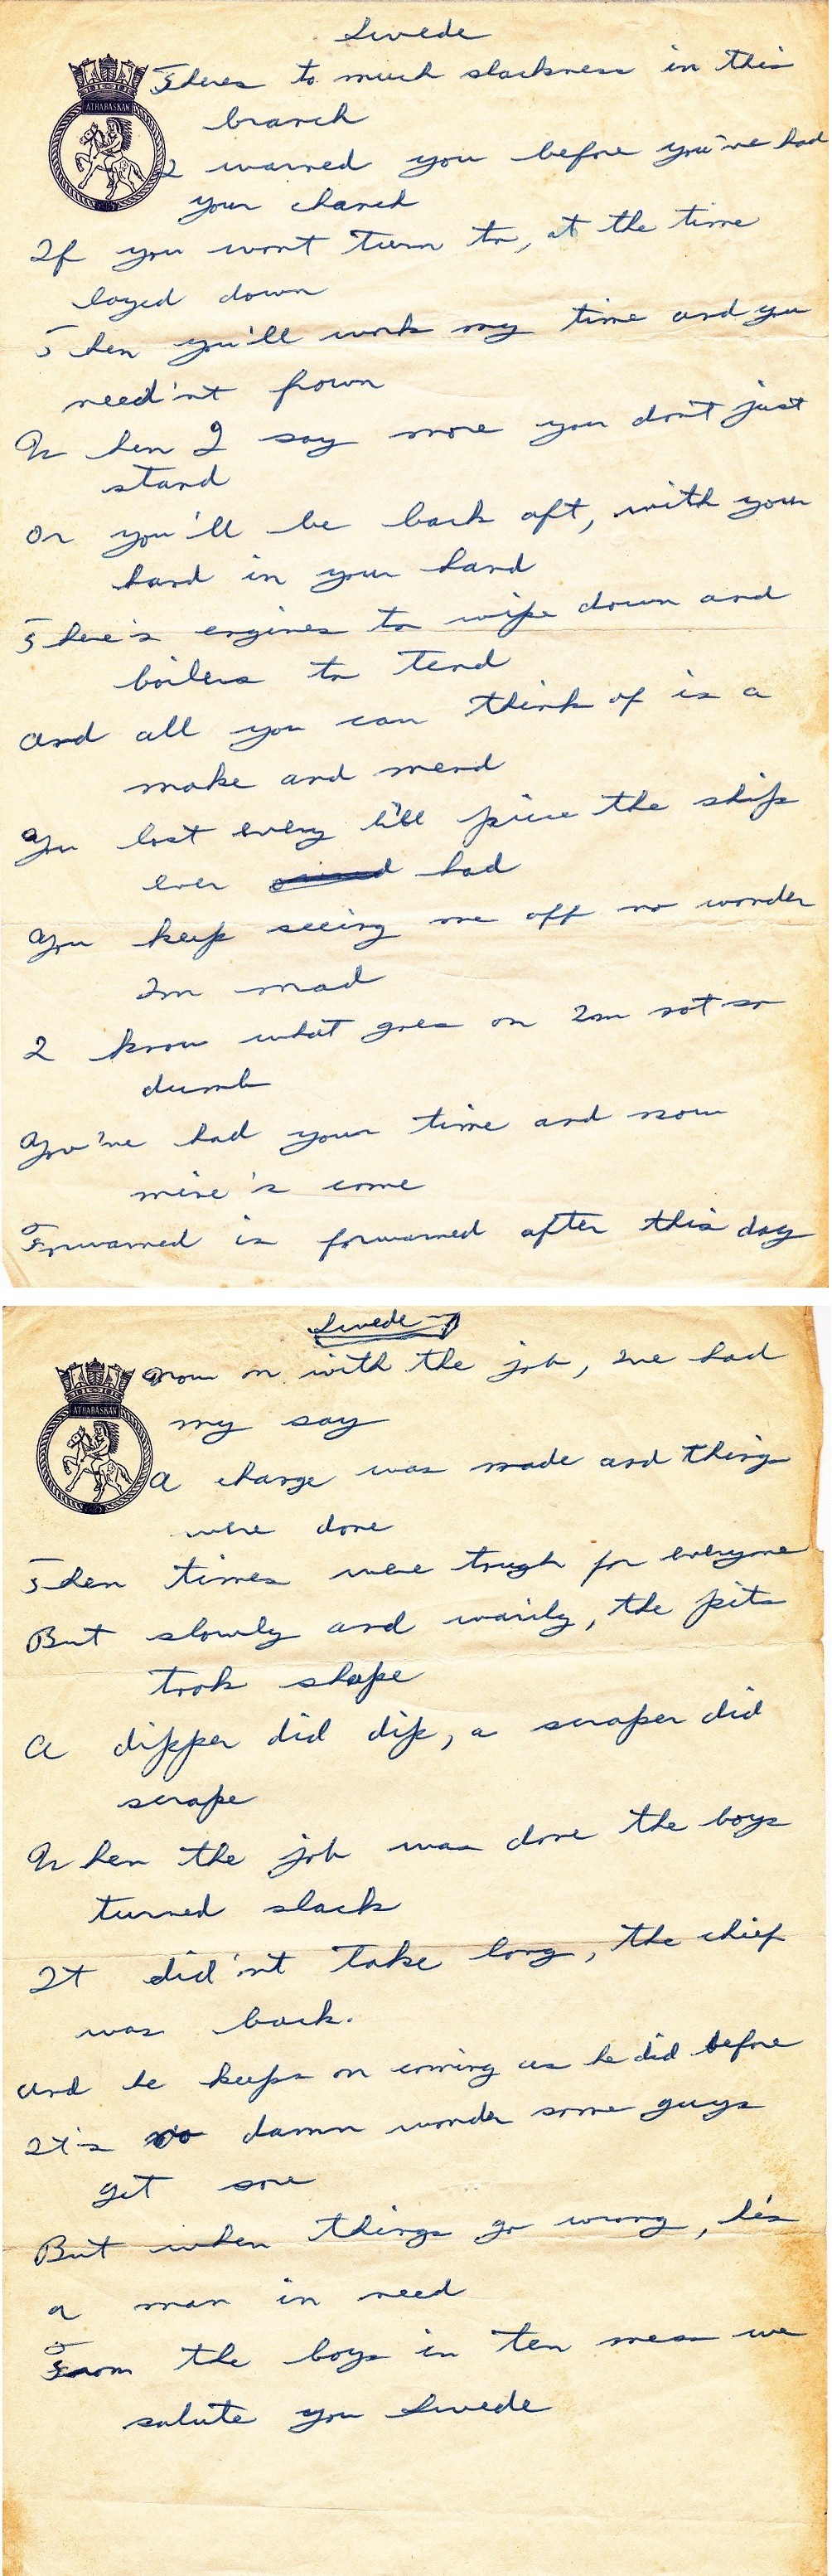 Swede
ATHABASKAN
Theres to much slackness in this
branch
I warned you before you've had
your chanch
If you wont turn to, at the time
layed down
Then you'll work my time and you
need'nt frown
When I say more you don't just
stand
Or you'll be back aft, with your
hand in your hand
There's engines to wipe down and
boilers to tend
And all you can think of is a
make and mend
You lost every li'll piece the ship
ever had
You keep seeing me off no wonder
Im mad
I know what goes on Im not so
dumb
You've had your time and now
mine's come
Forwarned is forwarned after this day
Swede
ATHABASKAN
Now on with the job, Ive had
my say
A charge was made and things
were done
Then times were tough for everyone
But slowly and warily, the pits
took shape
A dipper did dip, a scraper did
scrape
When the job was done the boys
turned slack
It did'nt take long, the chief
was back.
And he keeps on coming as he did before
It's no damn wonder some guys
get sore
But when things go wrong, he's
a man in need
From the boys in ten mess we
salute you Swede